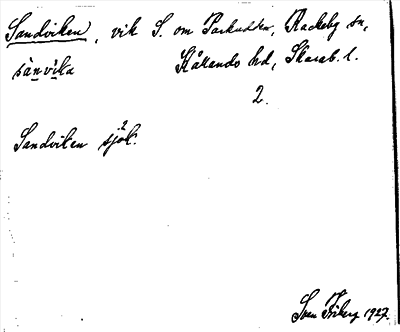 Sandviken, vik S. om Parkudden, Rackeby sn,
sànvika Kållands hd, Skarab. l.
2.
Sandviken sjök.2
Sven Friberg 1927.